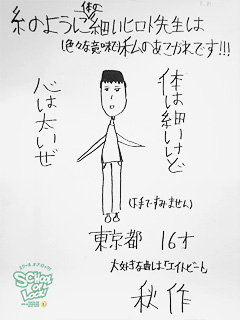 糸のように体の細いヒロト先生は
(色々な意味で)私のあこがれです!!!
体は細いけど
心は太いぜ
(上手ですみません)
東京都 16才
大好きな曲は「エイトビート」
秋作
SCHOOL OF LOCK!